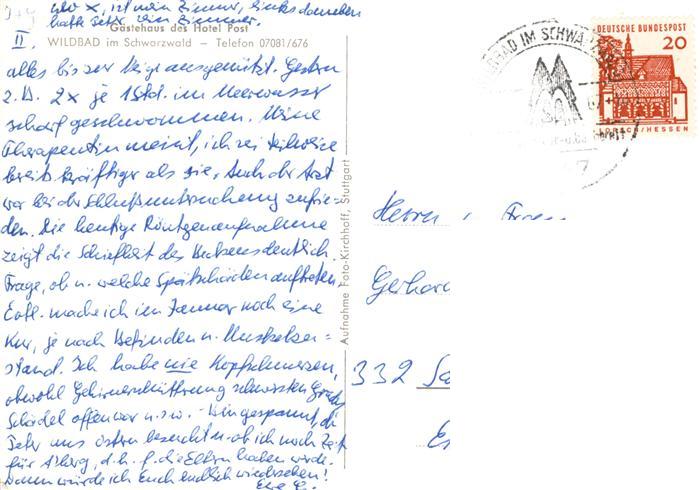 wo X, ist mein Zimmer, links daneben
hatte jetzt ein Zimmer.
Gästehaus des Hotel Post
II, WILDBAD im Schwarzwald – Telefon 07081/676
alles bis zur Neige ausgenützt. Gestern
z.B. 2x je 1 Std. im Meerwasser
scharf geschwommen. Meine
Therapeutin meint, ich sei teilweise
bereits kräftiger als sie. Auch der Arzt
war bei der Schlußuntersuchung zufrie=
den. Die heutige Röntgenaufnahme
zeigt die Schiefheit des Beckens deutlich.
Frage, ob u. welche Spätschäden auftreten.
Evtl. mache ich im Januar noch eine
Kur, je nach Befinden u. Muskelzu=
stand. Ich habe nie Kopfschmerzen,
obwohl Gehirnerschütterung schwersten Grades,
Schädel offen war u.s.w. – Bin gespannt, ob
Ihr uns Ostern besucht u. ob ich noch Zeit
für d.h. f. die Eltern haben werde.
Dann würde ich Euch endlich wiedersehen!
Aufnahme Foto-Kirchhoff, Stuttgart
DEUTSCHE BUNDESPOST
20
LORSCH/HESSEN
WILDBAD IM SCHWARZWALD
Herrn u.
Gerhard
332